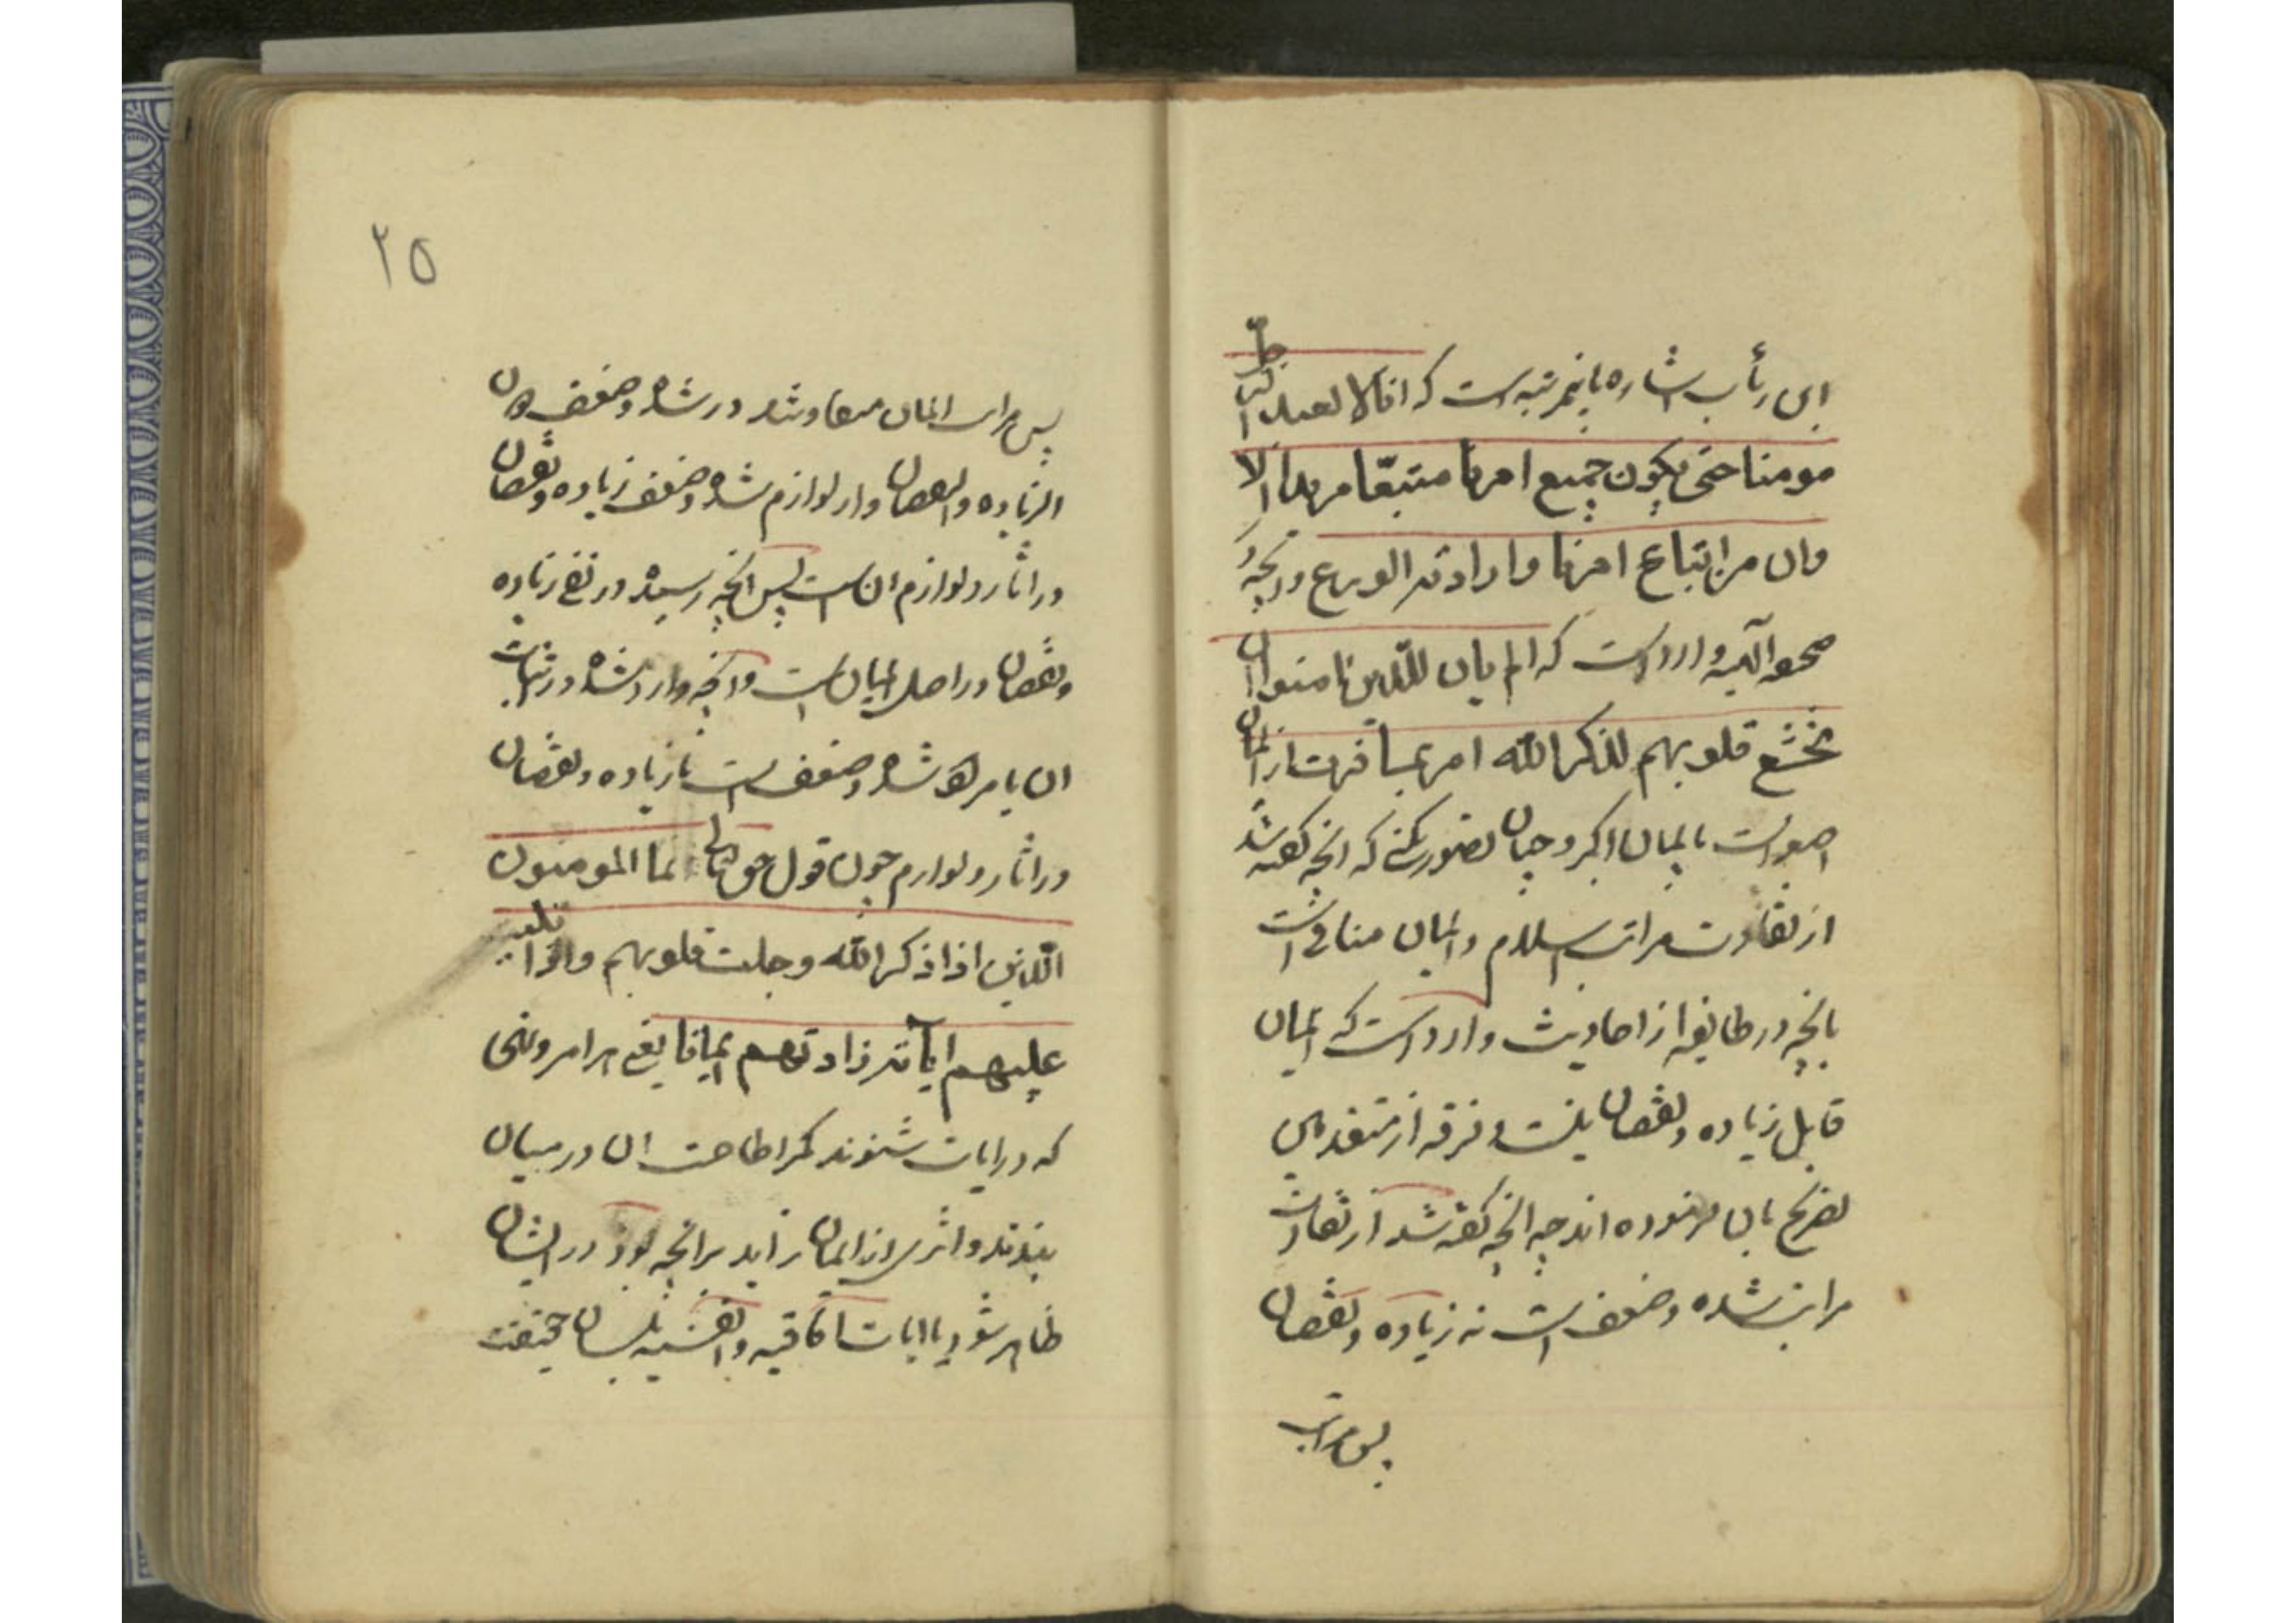 ابن رأب اشاره باینمرتبه است که انا لا نعد الرجل
مومنا حتی یکون جمیع امرنا متبعا مریدا الا
وان من اتباع امرنا وارادته الورع وانچه در
صحو الٓهیه وارد است که الم یان للذین امنوا ان
تخشع قلوبهم لذکر الله امر بمسافرت از ایمان
اصغر است بایمان اکبر و چنان تصور نکنی که انچه گفته شد
از تفاوت مراتب اسلام و ایمان منافی است
بانچه در طایفه از احادیث وارد است که ایمان
قابل زیاده و نقصان نیست و فرقه از متقدمین
تصریح بان فرموده اند چه انچه گفته شد از تفاوت
مراتب شده و ضعف است نه زیاده و نقصان
پس مراتب
٢٥
پس مراتب ایمان متفاوتند در شده و ضعف دون
الزیاده والنقصان و از لوازم شده و ضعف زیاده و نقصان
در اثار و لوازم ان است پس انچه رسیده در نفی زیاده
و نقصان در اصل ایمان است و انچه وارد شده در اثبات
ان یا مراد شده و ضعف است یا زیاده و نقصان
در اثار و لوازم چون قول حق تعالی انما المومنون
الذین اذا ذکر الله وجلت قلوبهم واذا تلیت
علیهم ایاته زادتهم ایمانا یعنی هر امر ونهی
که در ایات شنوند کمر اطاعت ان در میان
بندند و اثری از ایمان زاید بر انچه بود در ایشان
ظاهر شود یا ایات افاقیه و انفسیه بلسان حقیقت